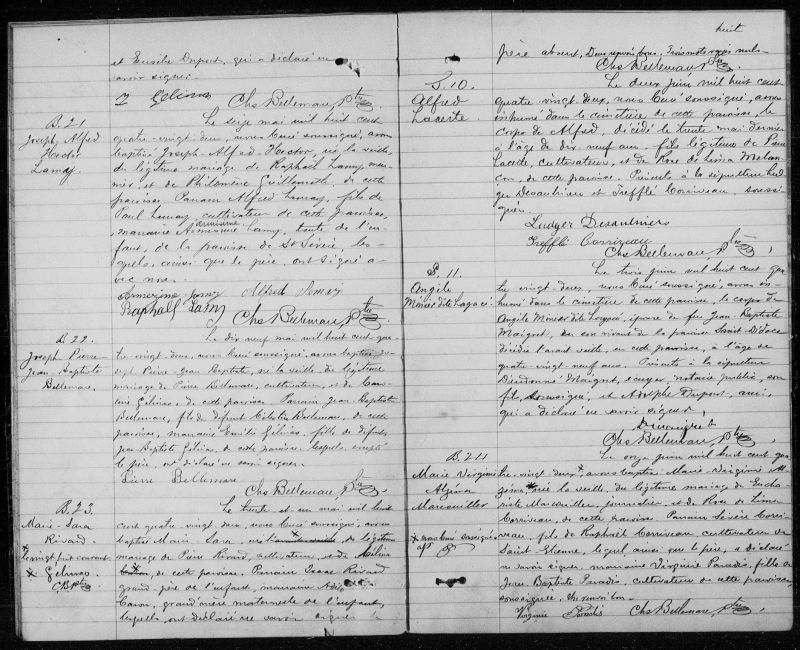 et Eusèbe Dupont, qui a déclaré ne
savoir signer.
Gélinas Chs Bellemare, Ptre
B. 21
Joseph, Alfred
Hector
Lamy.
Le seize mai mil huit cent
quatre-vingt-deux, nous Curé soussigné, avons
baptisé Joseph-Alfred-Hector, né la veille,
du légitime mariage de Raphaël Lamy, meu-
nier, et de Philomène Guillemette, de cette
paroisse. Parrain Alfred Lamy, fils de
Paul Lamy, cultivateur de cette paroisse,
marraine Lamy, tante de l'en-
fant, de la paroisse de St Sévère, les-
quels, ainsi que le père, ont signé a-
vec nous.
Lamy Alfred Lamy
Raphaël Lamy
Chs Bellemare, Ptre
B. 22.
Joseph Pierre
Jean Baptiste
Bellemare.
Le dix neuf mai mil huit cent qua-
tre-vingt-deux, nous Curé soussigné, avons baptisé Jo-
seph Pierre Jean Baptiste, né la veille du légitime
mariage de Pierre Bellemare, cultivateur, et de
Gélinas, de cette paroisse. Parrain Jean Baptiste
Bellemare, fils de défunt Bellemare, de cette
paroisse, marraine Emilie Gélinas, fille de défunt
Jean Baptiste Gélinas, de cette paroisse, lesquels, excepté
le père, ont déclaré ne savoir signer.
Pierre Bellemare
Chs Bellemare, Ptre
B. 23.
Marie-Sara
Rivard.
courant
Gélinas
C.B. Ptre
Le trente et un mai mil huit
cent quatre vingt deux, nous Curé soussigné, avons
baptisé Marie Sara, née du légitime
mariage de Pierre Rivard, cultivateur, et de
de cette paroisse. Parrain Isaac Rivard
grand-père de l'enfant, marraine
Caron, grand'mère maternelle de l'enfant,
lesquels ont déclaré ne savoir signer
huit
père absent, Deux renvois bons. Trois mots rayés nuls.
Chs Bellemare, Ptre
S. 10.
Alfred
Lacerte
Le deux juin mil huit cent
quatre vingt deux, nous Curé soussigné, avons
inhumé dans le cimetière de cette paroisse, le
corps de Alfred, décédé le trente mai dernier
à l'âge de dix neuf ans, fils légitime de Pierre
Lacerte, cultivateur, et de Rose de Lima Melan-
çon, de cette paroisse. Présents à la sépulture Lud-
ger Desaulniers et Trefflé Corriveau, sous-
signés.
Ludger Desaulniers
Trefflé Corriveau
Chs Bellemare, Ptre
S. 11.
Angèle
Le trois juin mil huit cent qua-
tre vingt deux, nous Curé soussigné, avons in-
humé dans le cimetière de cette paroisse, le corps de
Angèle épouse de feu Jean-Baptiste
Maigret, en son vivant de la paroisse Saint-Didace
décédée l'avant veille, en cette paroisse, à l'âge de
quatre vingt neuf ans. Présents à la sépulture
Dieudonné Maigret, écuyer, notaire public, son
fils, soussigné, et Adolphe Dupont, ami,
qui a déclaré ne savoir signer.
D. Maigret
Chs Bellemare, Ptre
B. 24
Marie Virginie
Alzina
Marcouiller
nous Curé soussigné
Le onze juin mil huit cent qua-
tre-vingt-deux, avons baptisé Marie Virginie Al-
zina, née la veille, du légitime mariage de Eucha-
riste Marcouiller, journalier, et de Rose de Lima
Corriveau, de cette paroisse. Parrain Sévère Corri-
veau, fils de Raphaël Corriveau, cultivateur de
Saint Etienne, lequel ainsi que le père, a déclaré
ne savoir signer, marraine Virginie Paradis, fille de
Jean Baptiste Paradis, cultivateur de cette paroisse,
soussignée. Un renvoi bon.
Virginie Paradis Chs Bellemare, Ptre